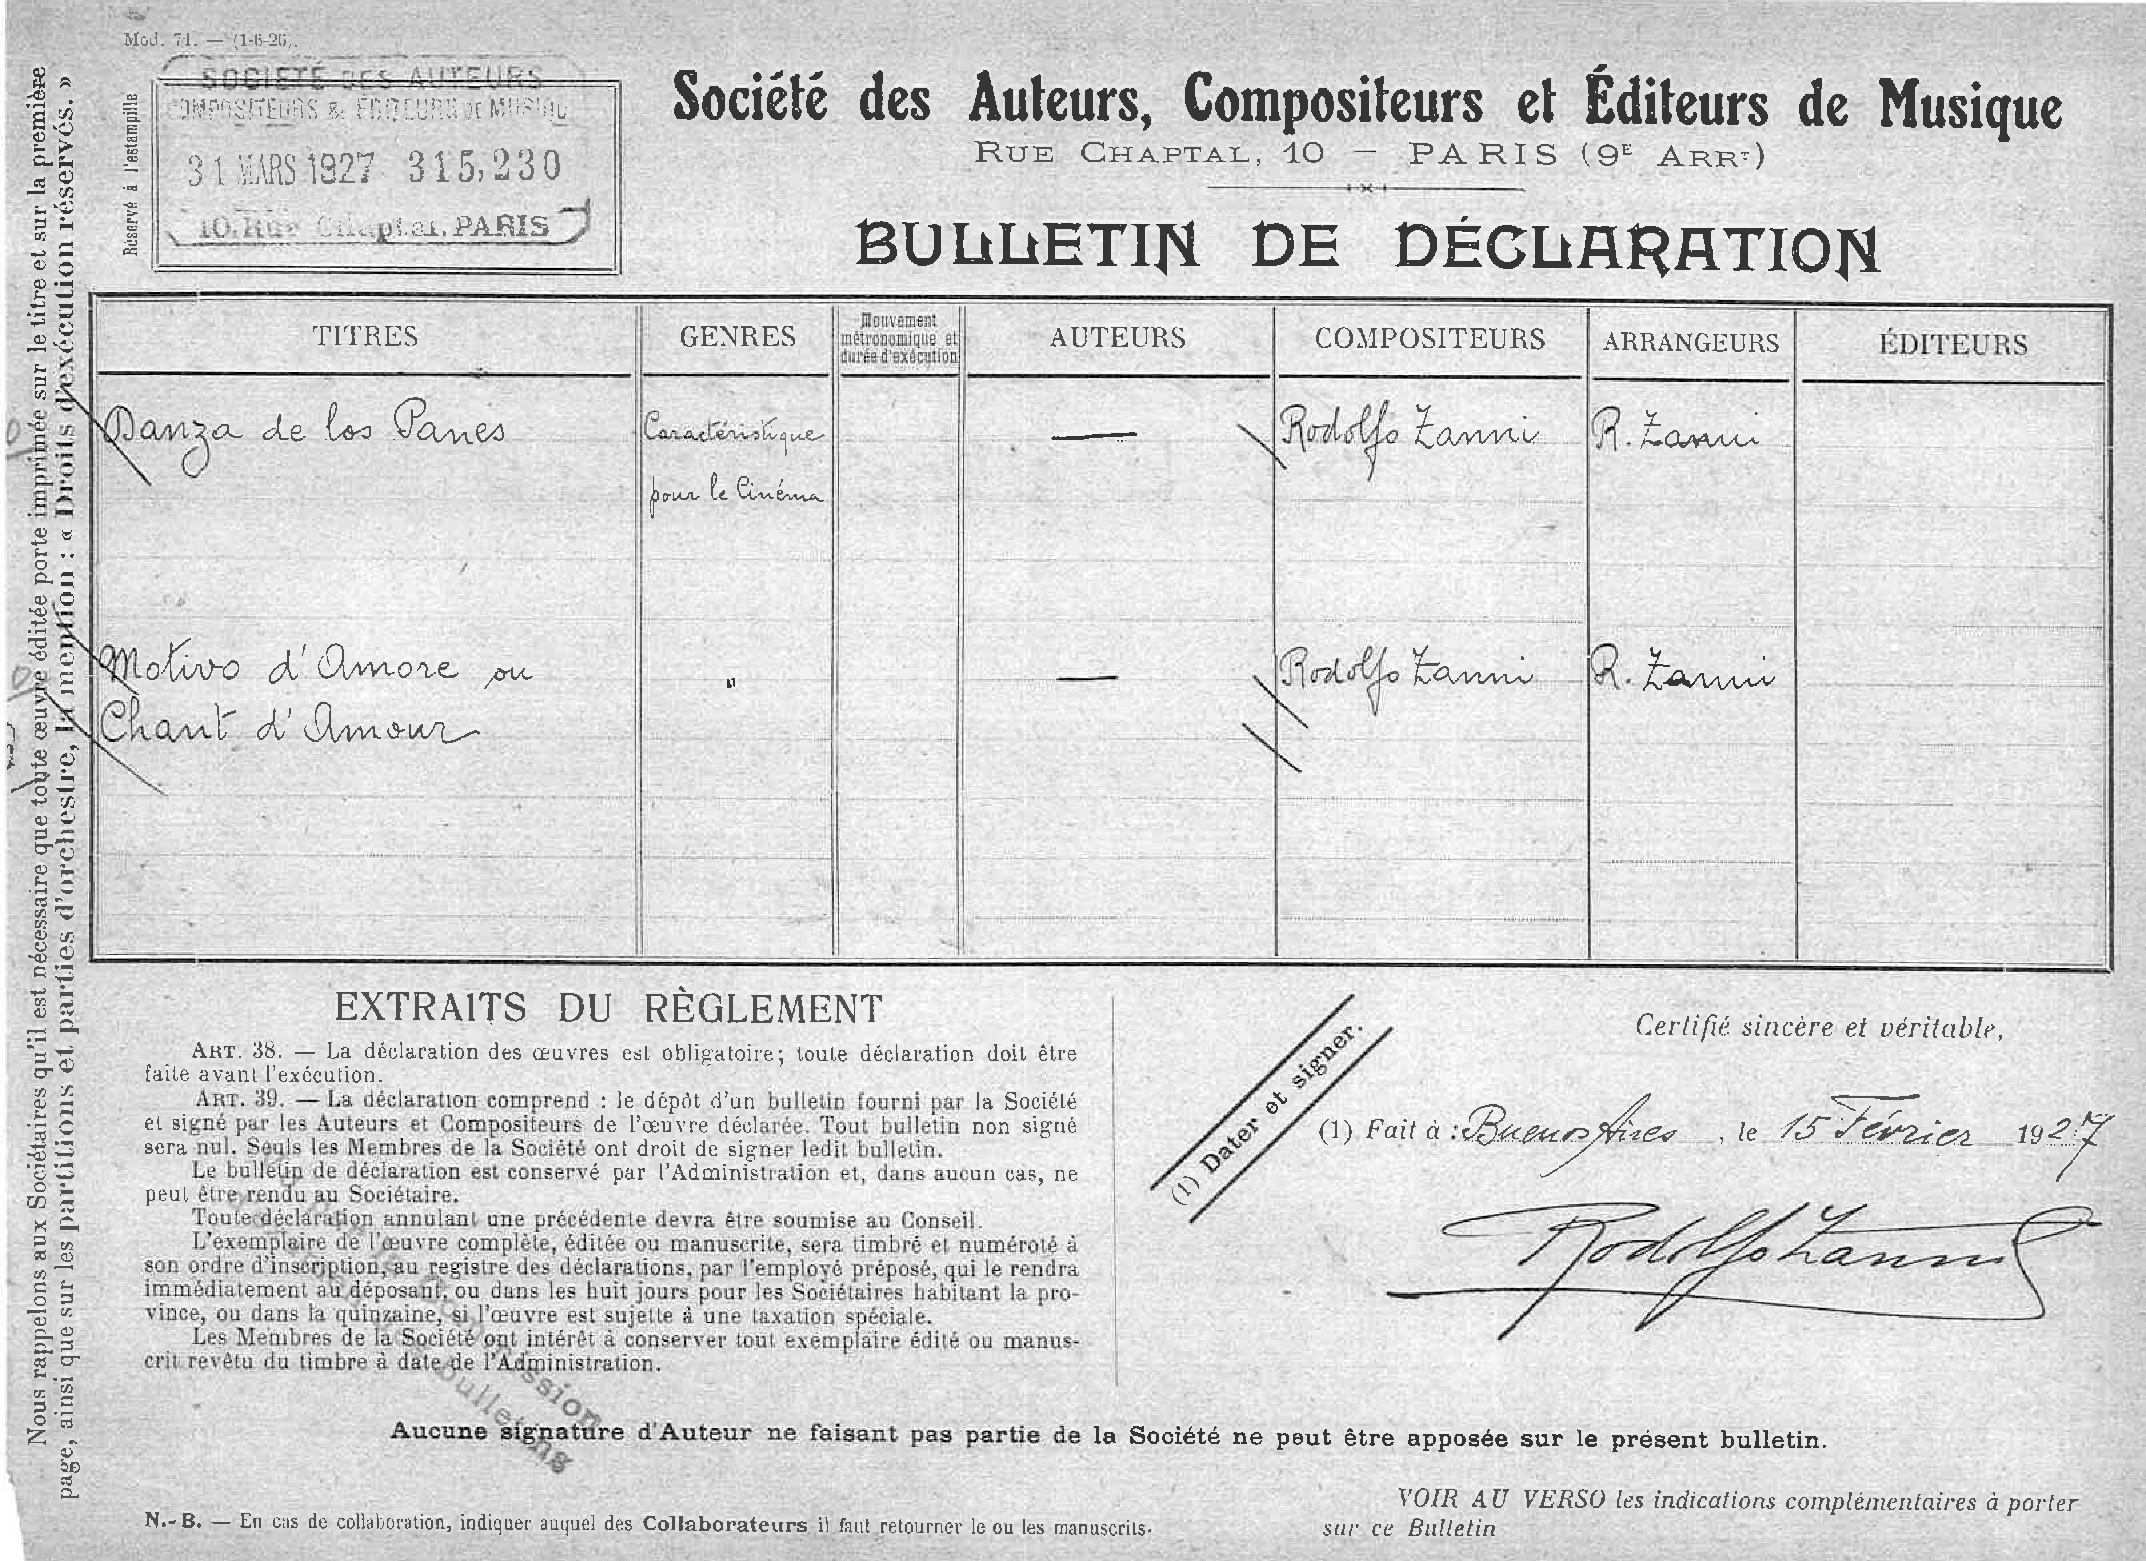 Mod. 71. — (1-6-26).
Réservé à l'estampille
SOCIÉTÉ DES AUTEURS
COMPOSITEURS & EDITEURS DE MUSIQUE
31 MARS 1927 315,230
10, Rue Chaptal, PARIS
Société des Auteurs, Compositeurs et Éditeurs de Musique
RUE CHAPTAL, 10 — PARIS (9E ARRT)
BULLETIN DE DÉCLARATION
Nous rappelons aux Sociétaires qu'il est nécessaire que toute œuvre éditée porte imprimée sur le titre et sur la première
page, ainsi que sur les partitions et parties d'orchestre, la mention : « Droits d'exécution réservés. »
TITRES GENRES Mouvement métronomique et durée d'exécution AUTEURS COMPOSITEURS ARRANGEURS ÉDITEURS
Danza de los Panes Caractéristique — Rodolfo Zanni R. Zanni
pour le Cinéma
Motivo d'Amore ou " — Rodolfo Zanni R. Zanni
Chant d'Amour
EXTRAITS DU RÈGLEMENT
ART. 38. — La déclaration des œuvres est obligatoire; toute déclaration doit être
faite avant l'exécution.
ART. 39. — La déclaration comprend : le dépôt d'un bulletin fourni par la Société
et signé par les Auteurs et Compositeurs de l'œuvre déclarée. Tout bulletin non signé
sera nul. Seuls les Membres de la Société ont droit de signer ledit bulletin.
Le bulletin de déclaration est conservé par l'Administration et, dans aucun cas, ne
peut être rendu au Sociétaire.
Toute déclaration annulant une précédente devra être soumise au Conseil.
L'exemplaire de l'œuvre complète, éditée ou manuscrite, sera timbré et numéroté à
son ordre d'inscription, au registre des déclarations, par l'employé préposé, qui le rendra
immédiatement au déposant, ou dans les huit jours pour les Sociétaires habitant la pro-
vince, ou dans la quinzaine, si l'œuvre est sujette à une taxation spéciale.
Les Membres de la Société ont intérêt à conserver tout exemplaire édité ou manus-
crit revêtu du timbre à date de l'Administration.
bulletins
(1) Dater et signer.
Certifié sincère et véritable,
(1) Fait à : Buenos Aires, le 15 Février 1927
Rodolfo Zanni
Aucune signature d'Auteur ne faisant pas partie de la Société ne peut être apposée sur le présent bulletin.
N.-B. — En cas de collaboration, indiquer auquel des Collaborateurs il faut retourner le ou les manuscrits.
VOIR AU VERSO les indications complémentaires à porter
sur ce Bulletin